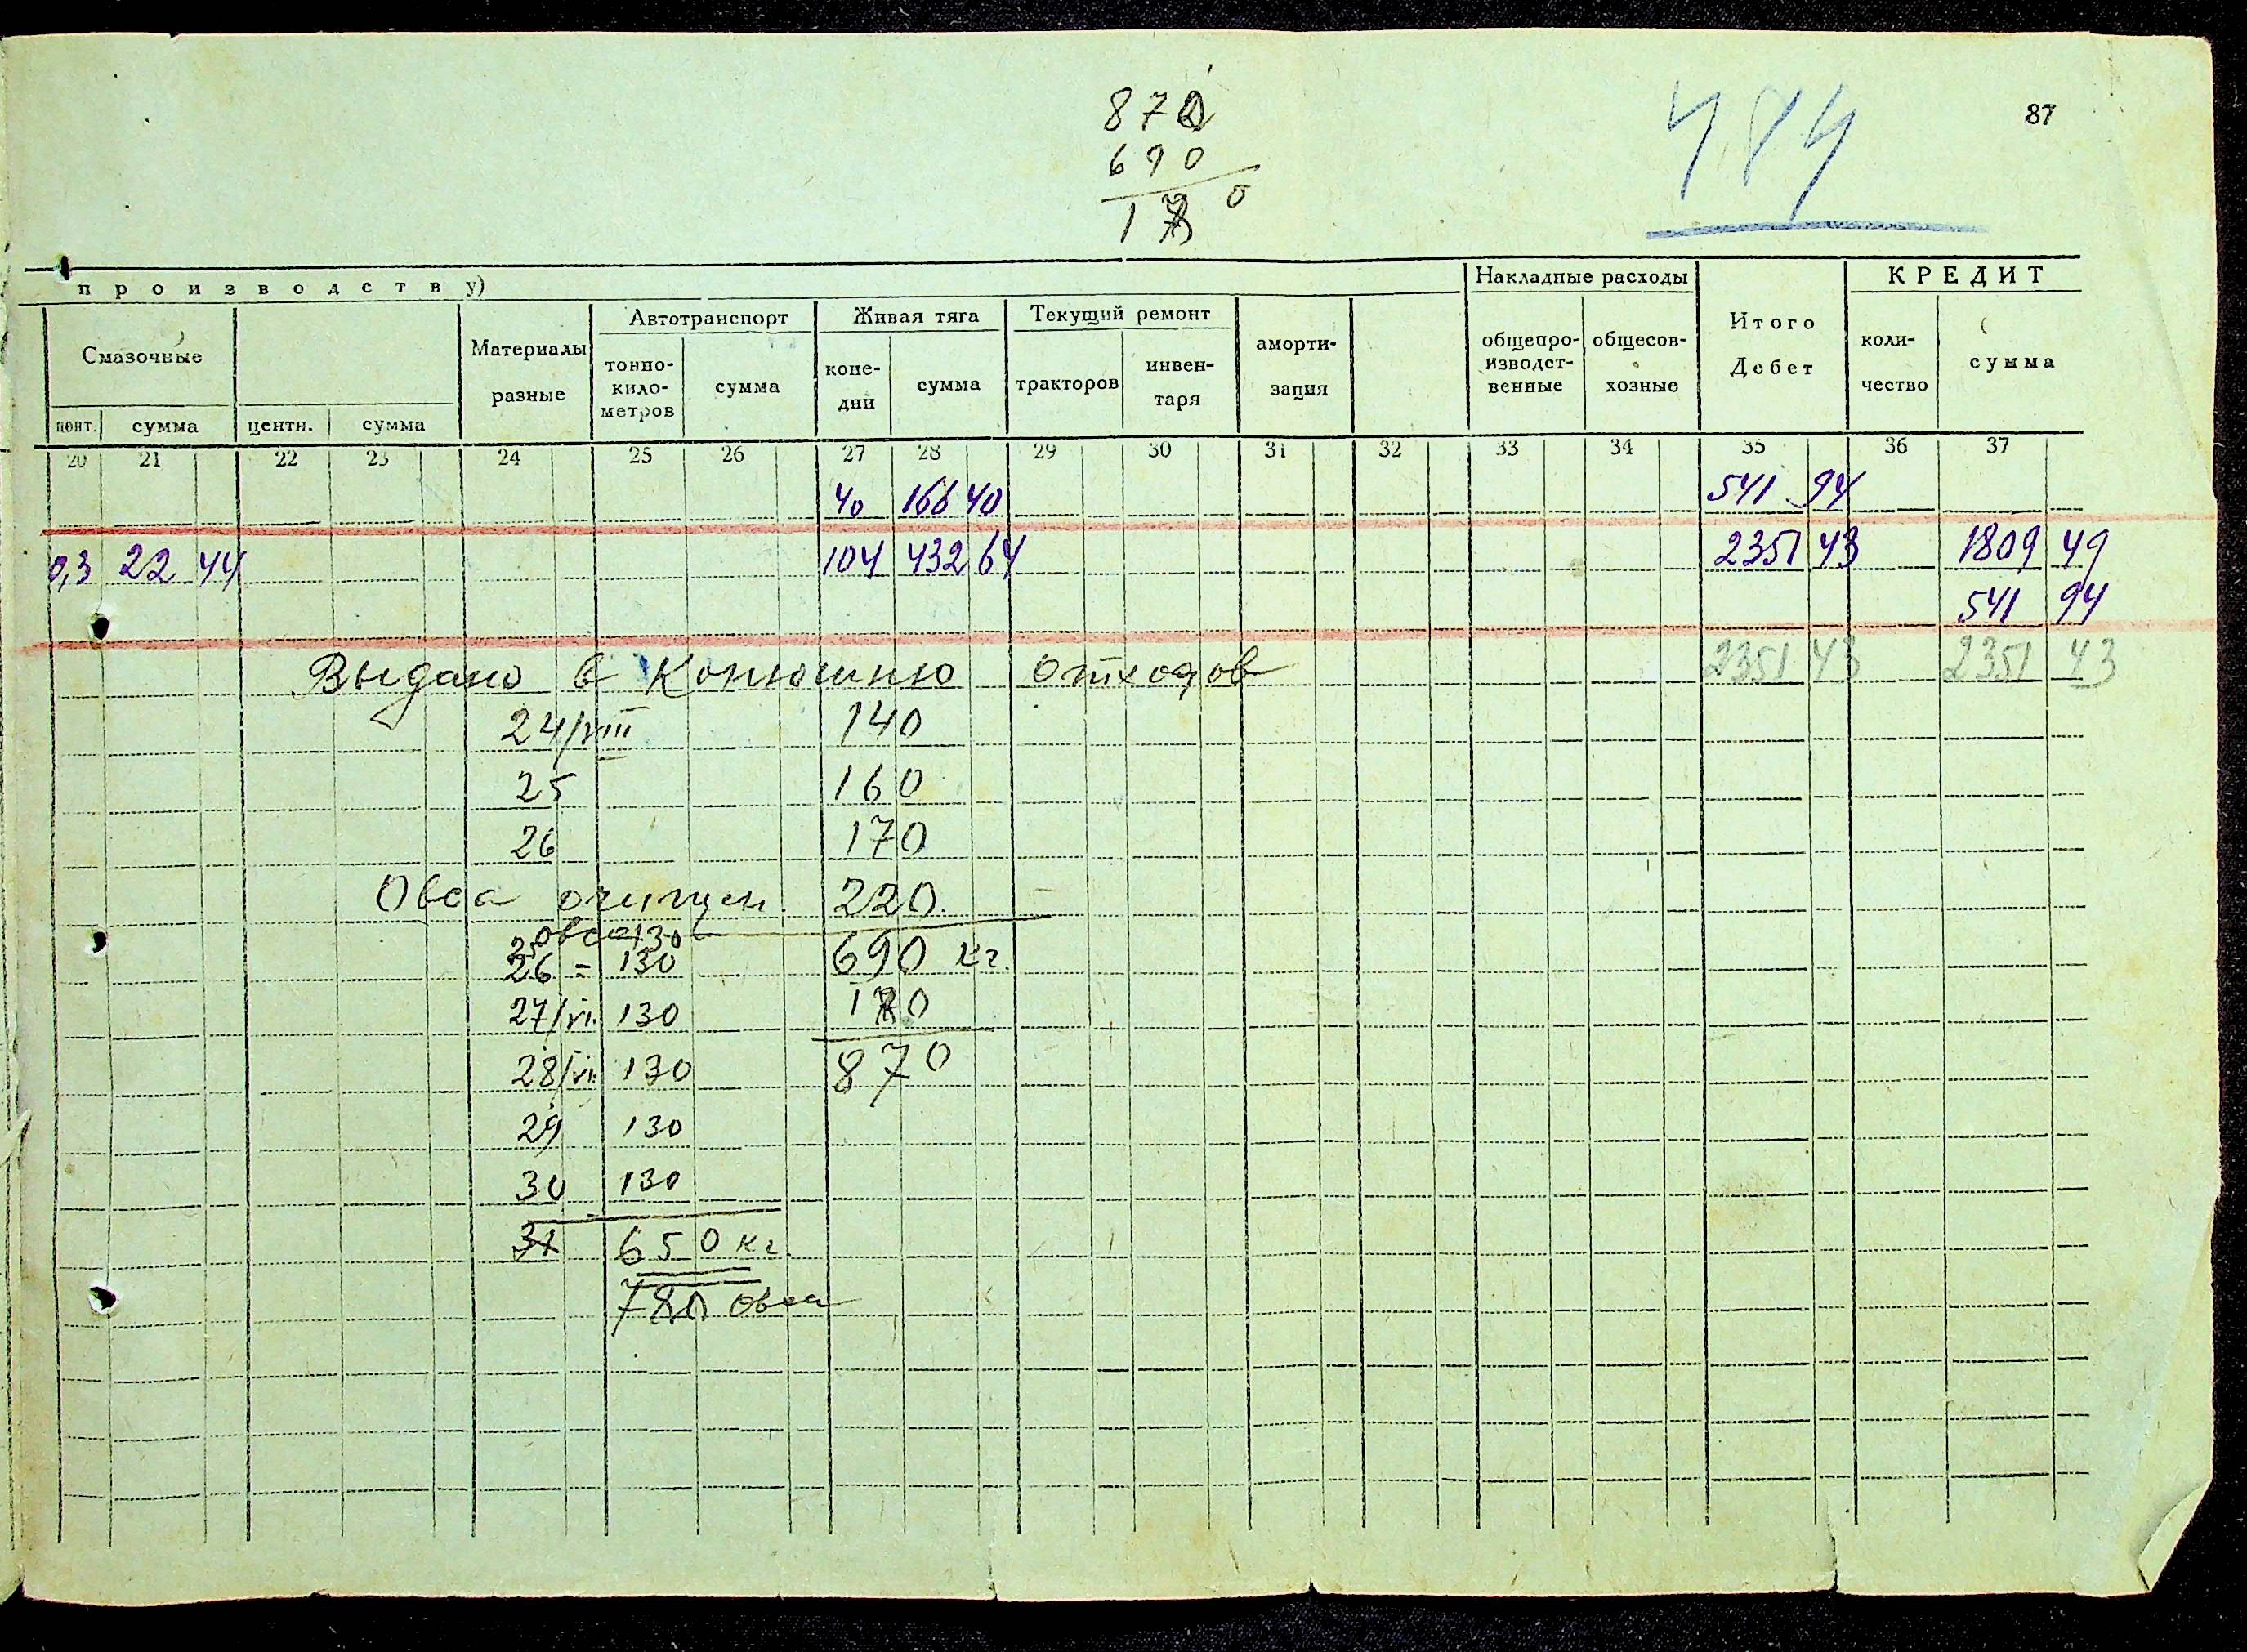 870
690
180
484
87
производству)
Накладные расходы
КРЕДИТ
Смазочные
Материалы разные
Автотранспорт
Живая тяга
Текущий ремонт
аморти-зация
общепро-изводст-венные
общесов-хозные
Итого Дебет
коли-чество
сумма
цент. сумма центн. сумма
тонно-кило-метров сумма
коне-дни сумма
тракторов инвен-таря
20 21 22 23 24 25 26 27 28 29 30 31 32 33 34 35 36 37
40 166 40 541 94
0,3 22 44 104 432 64 2351 43 1809 49
541 94
Выдано в Конюшню отходов 2351 43 2351 43
24/VIII 140
25 160
26 170
Овса очищен. 220
25 овса 130
26 = 130 690 кг.
27/VI 130 180
28/VI 130 870
29 130
30 130
31 650 кг
780 овса